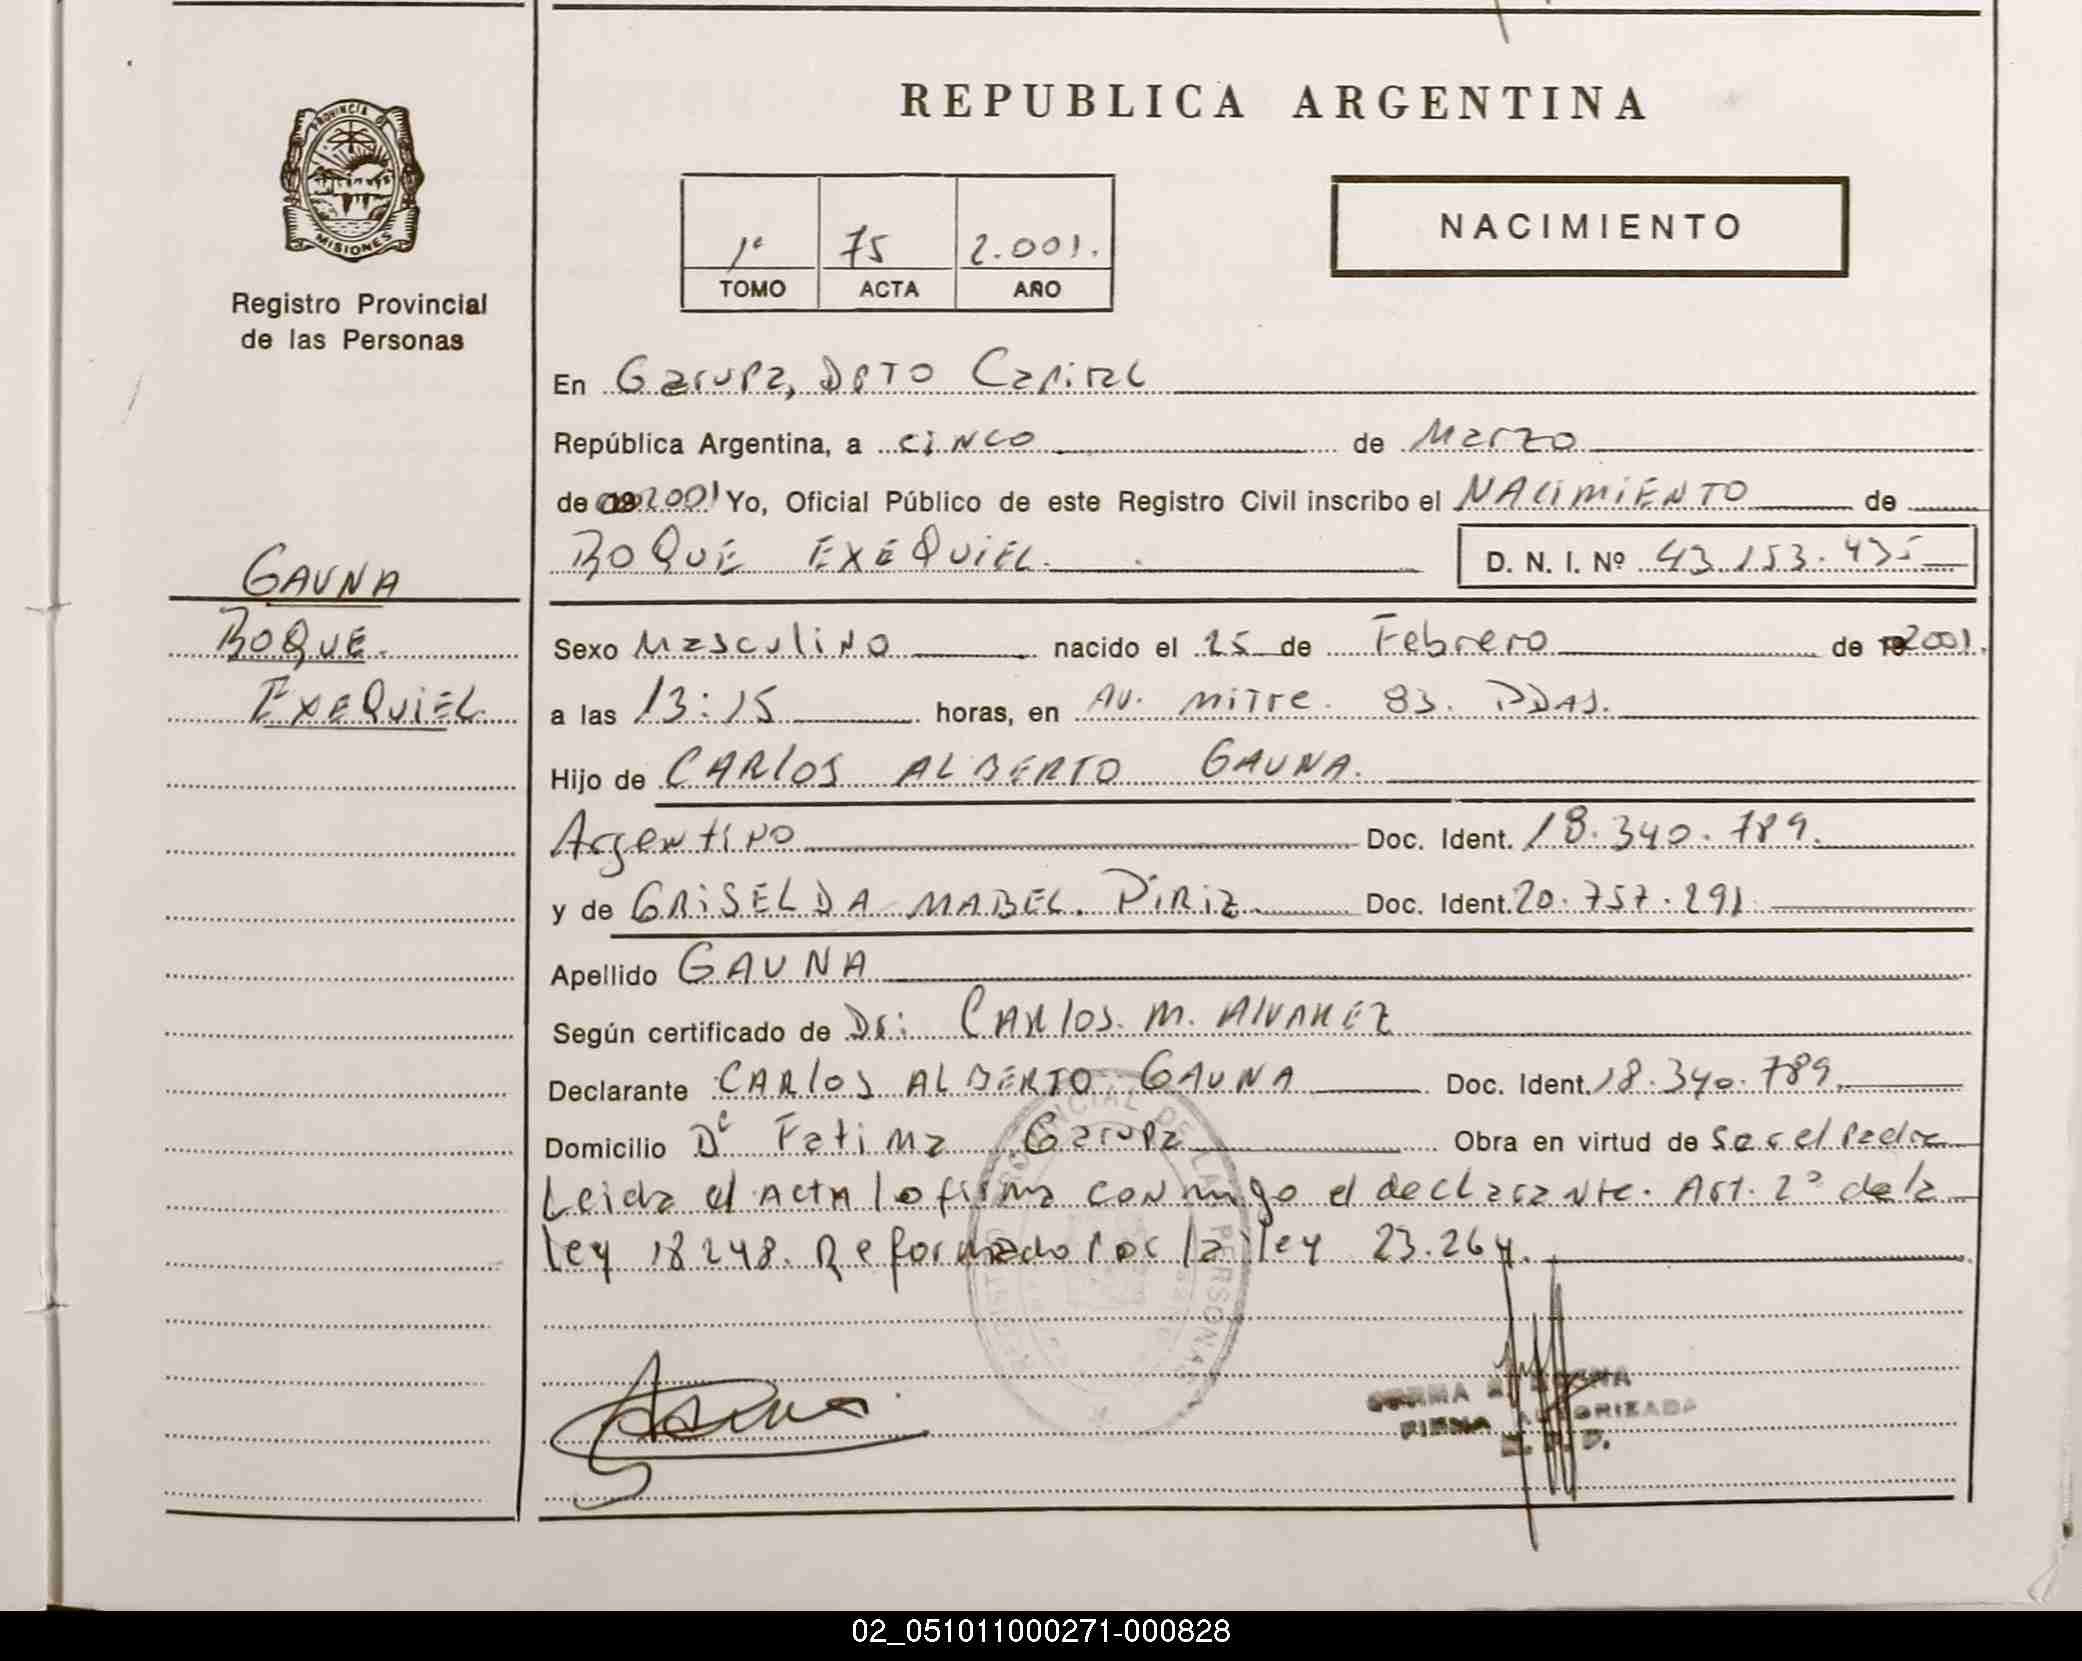 REPUBLICA ARGENTINA
PROVINCIA DE
MISIONES
Registro Provincial
de las Personas
1º 75 2.001.
TOMO ACTA AÑO
NACIMIENTO
En Garupa, Dpto Capital
República Argentina, a cinco de Marzo
de 2001 Yo, Oficial Público de este Registro Civil inscribo el NACIMIENTO de
ROQUE EXEQUIEL. D. N. I. Nº 43.153.435
GAUNA
ROQUE.
EXEQUIEL.
Sexo Masculino nacido el 25 de Febrero de 2001.
a las 13:15 horas, en Av. Mitre. 83. PDAS.
Hijo de CARLOS ALBERTO GAUNA.
Argentino Doc. Ident. 18.340.789.
y de GRISELDA MABEL. PIRIZ Doc. Ident. 20.757.291
Apellido GAUNA
Según certificado de Dr: CARLOS. M. ALVAREZ
Declarante CARLOS ALBERTO GAUNA Doc. Ident. 18.340.789.
Domicilio Bº Fatima Garupa Obra en virtud de Ser el Padre
Leida el Acta lo firma conmigo el declarante. Art. 2º de la
ley 18248. Reformado por la ley 23.264.
REGISTRO PROVINCIAL DE LAS PERSONAS
FIRMA AUTORIZADA
02_051011000271-000828